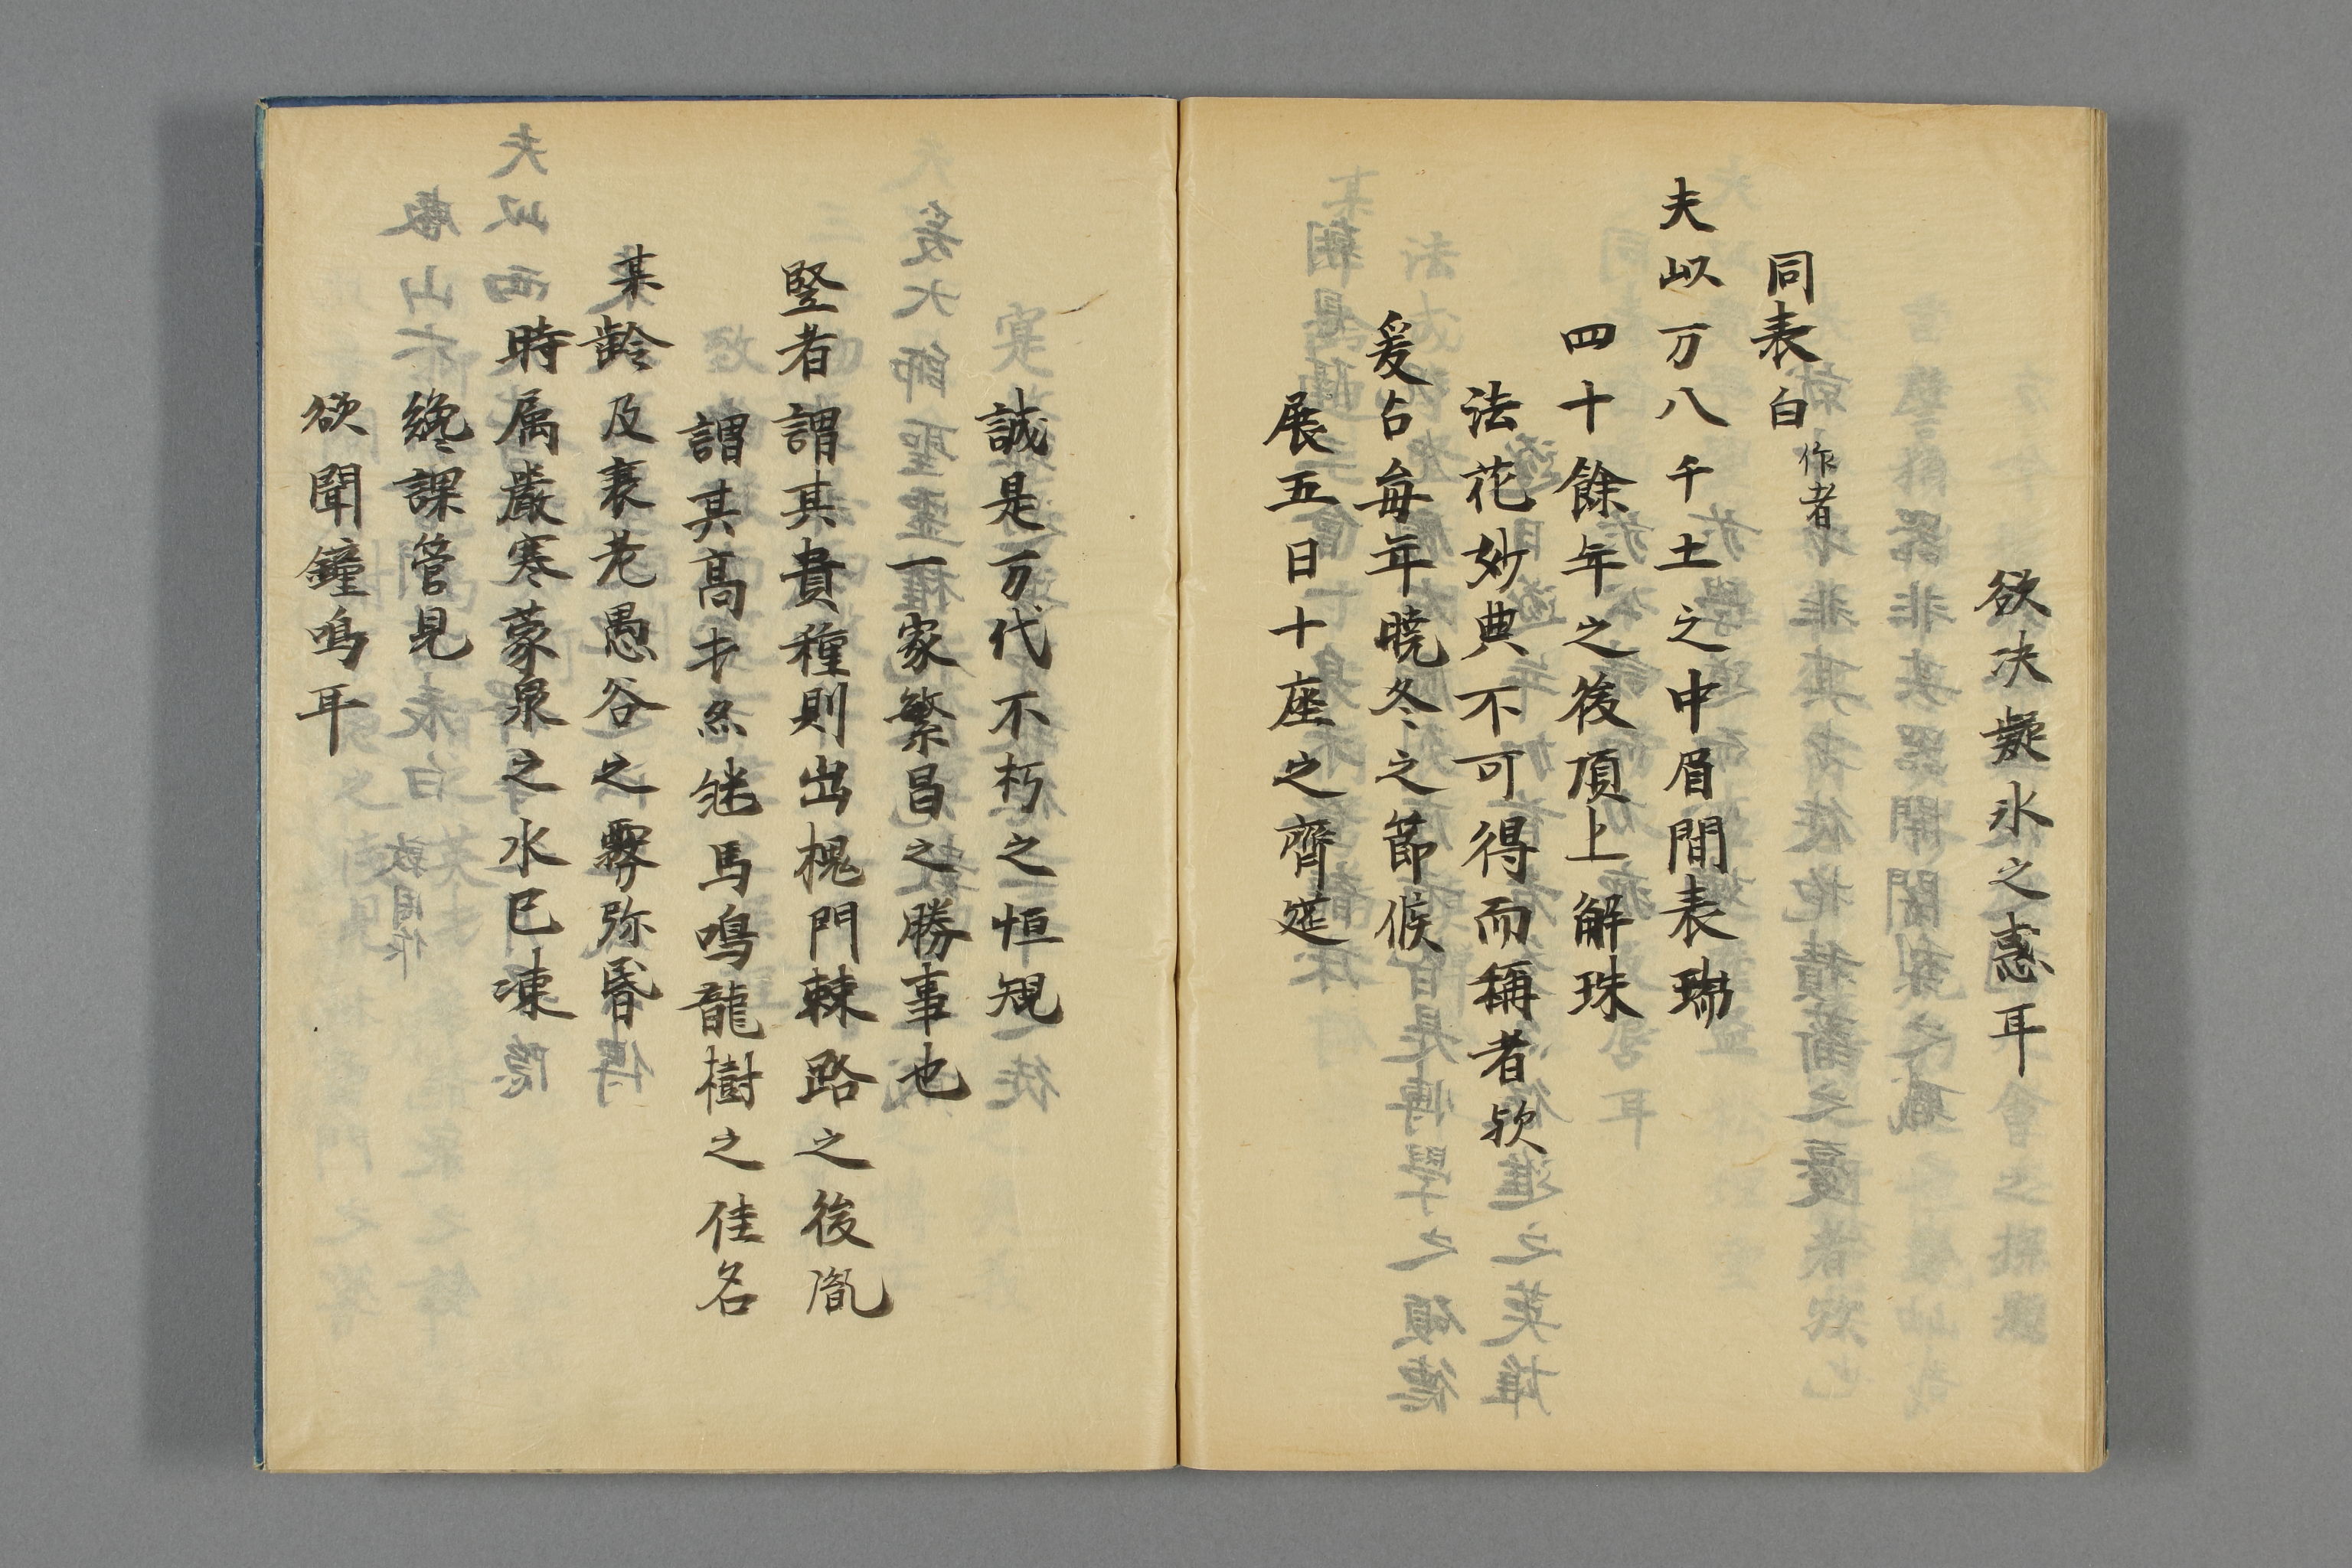 欲决疑氷之惑耳
同表白 作者
夫以万八千土之中眉間表瑞
四十餘年之後頂上解珠
法花妙典不可得而稱者欤
爰占毎年暁冬之節候
展五日十座之齊莚
誠是万代不朽之恒規
一家繁昌之勝事也
竪者謂其貴種則出槐門棘路之後胤
謂其高才亦継馬鳴龍樹之佳名
某齢及衰老愚谷之霧弥昏
時属嚴寒蒙泉之水已凍
纔課管見
欲聞鐘鳴耳